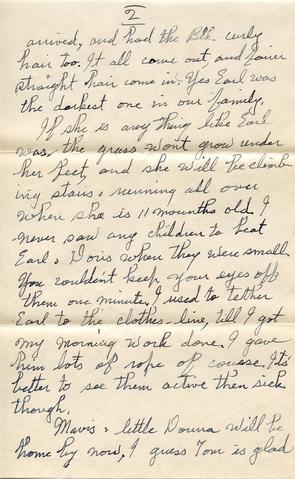 2
arrived, and had the Blk. curly
hair too. It all come out, and fairer
straight hair come in. Yes Earl was
the darkest one in our family.
If she is any thing like Earl
was, the grass won't grow under
her feet, and she will be climb
ing stairs & running all over
when she is 11 mounths old, I
never saw any children to beat
Earl & Doris when they were small.
You couldn't keep your eyes off
them one minute. I used to tether
Earl to the clothes-line, till I got
my morning work done. I gave
him lots of rope of couse. It's
better to see them active then sick
though.
Mavis & little Donna will be
home by now, I guess Tom is glad